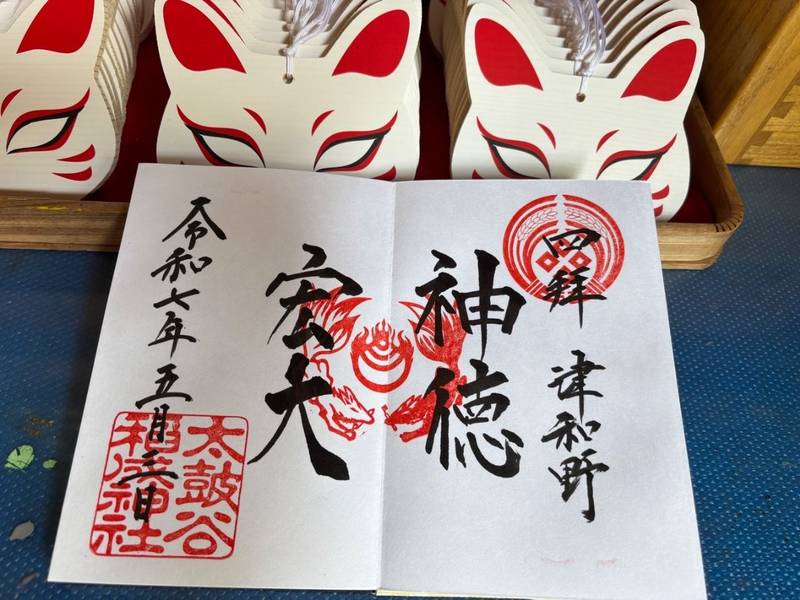 四拝 津和野
神徳
宏大
令和七年五月三日
太鼓谷
稲成神社